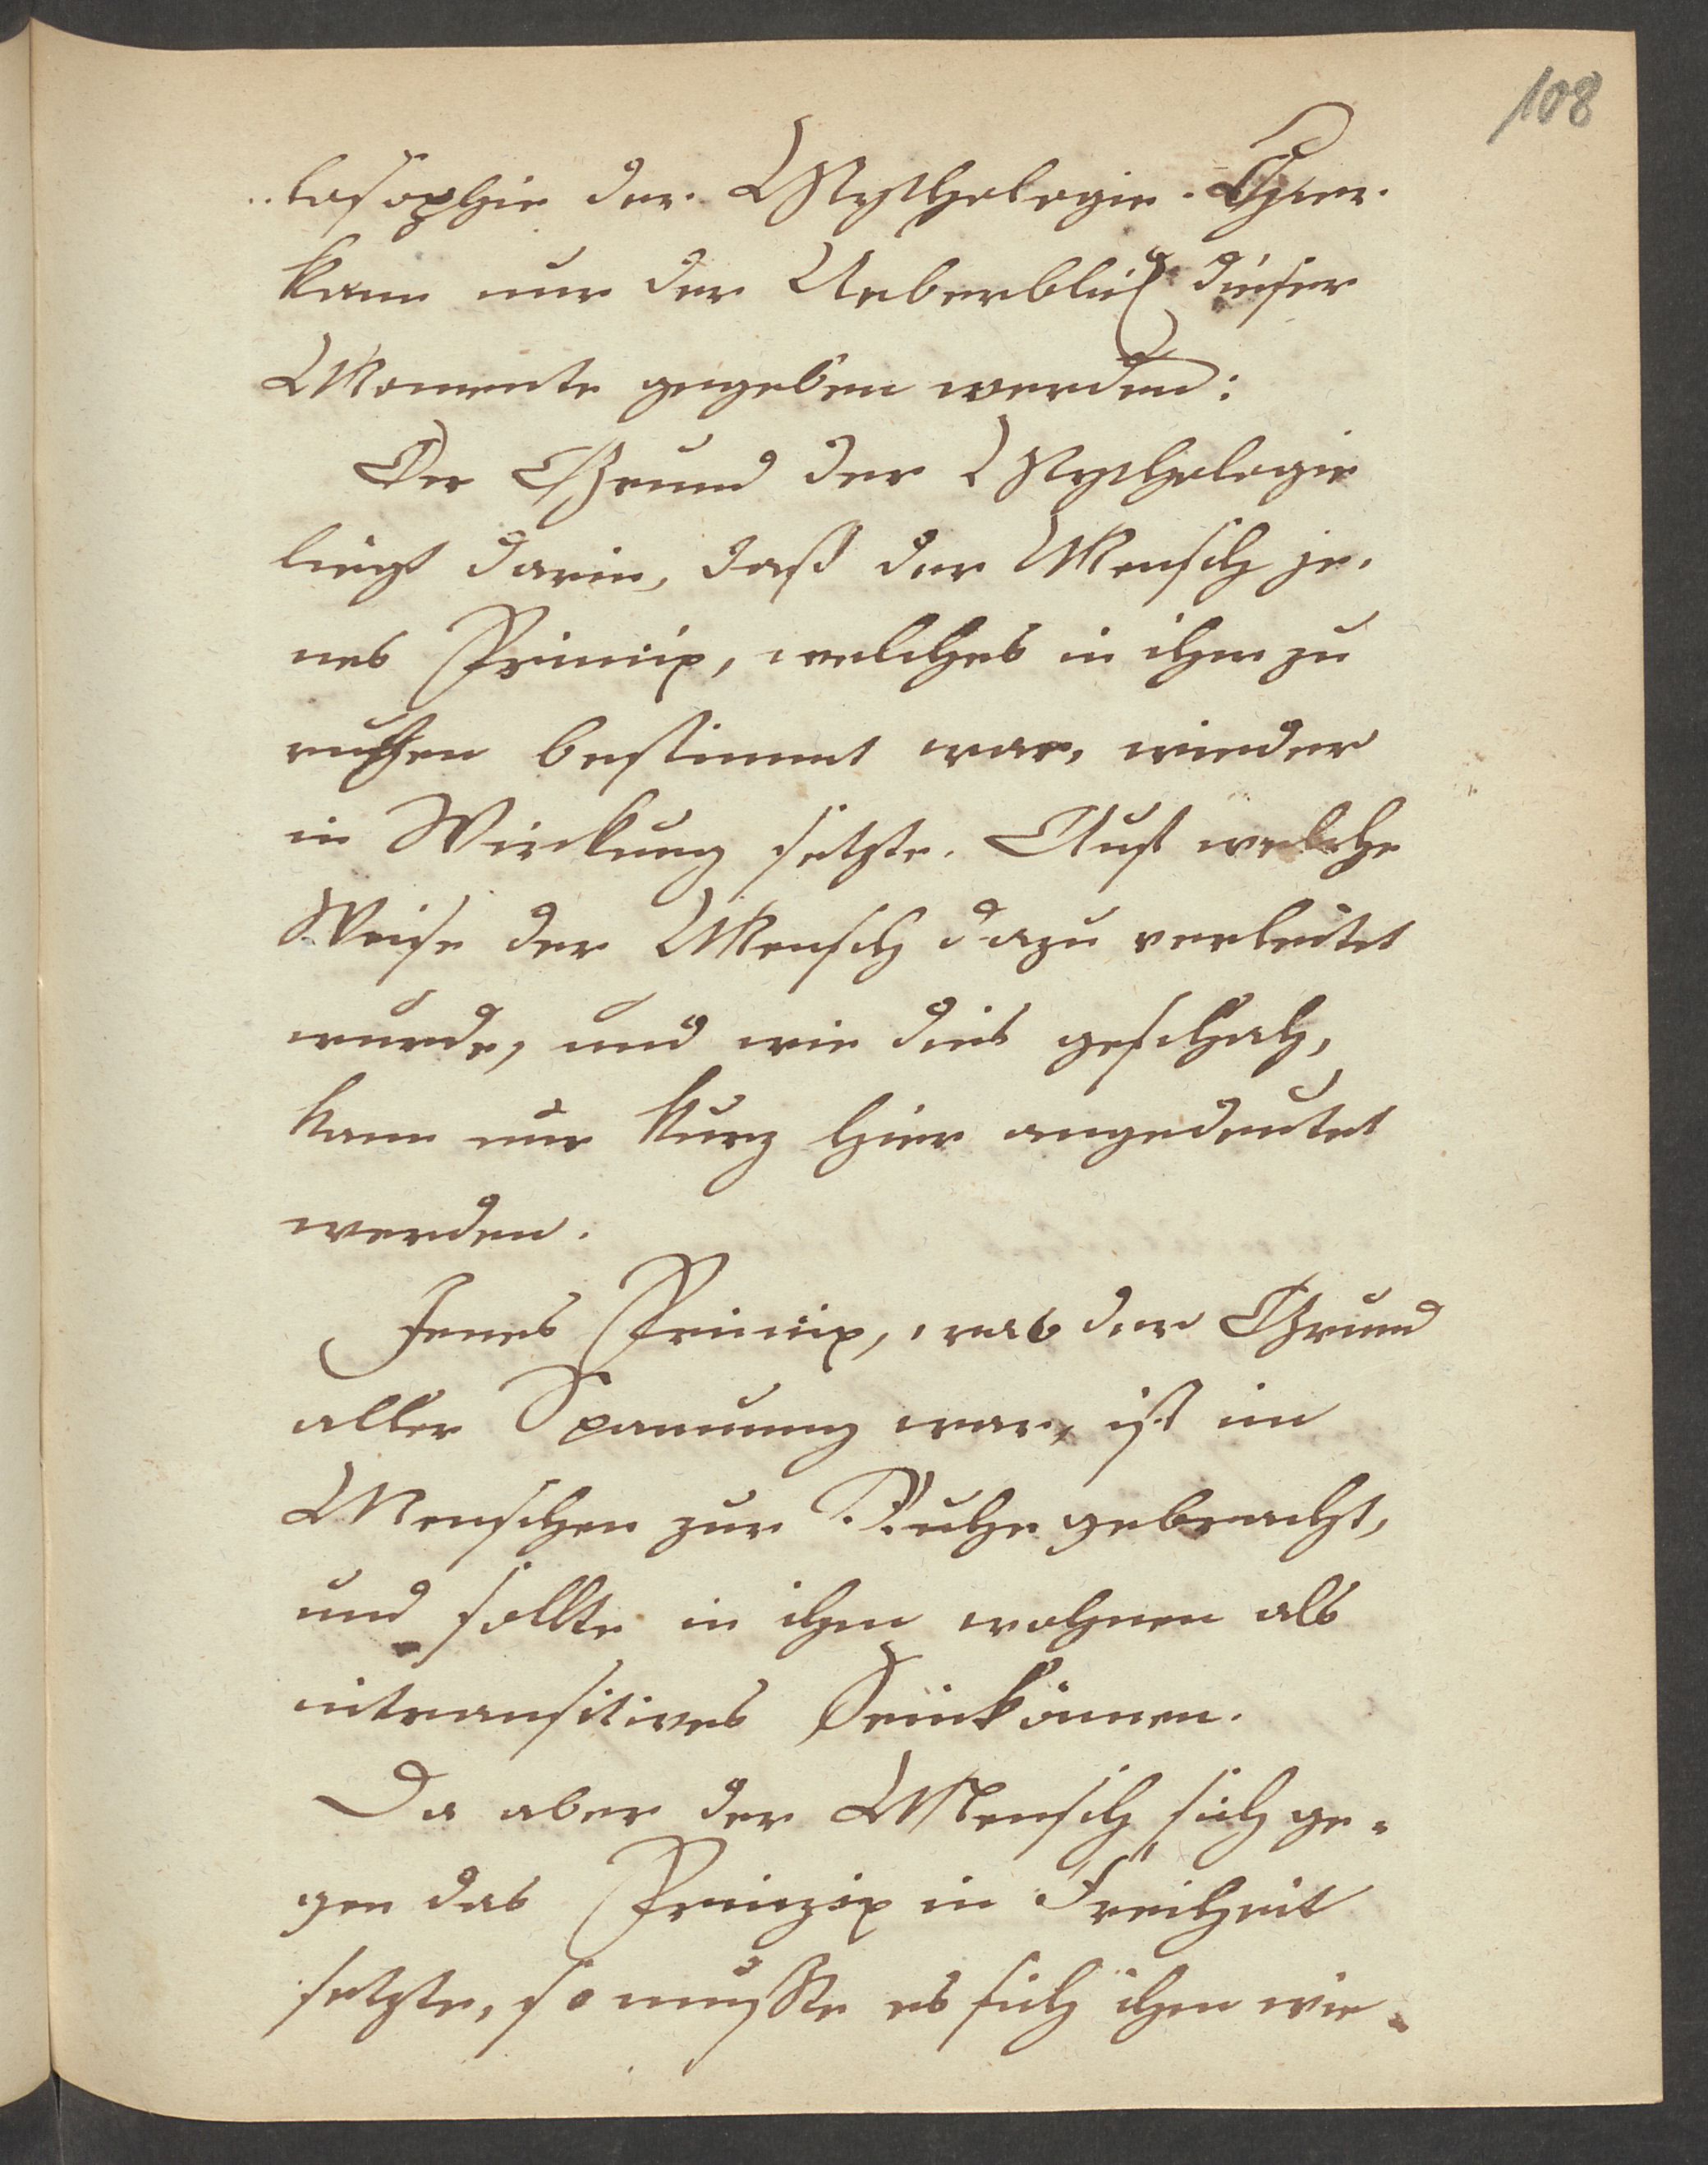 108
losophie der Mythologie. Hier
kann nur der Ueberblick dieser
Momente gegeben werden:
Der Grund der Mythologie
liegt darin, daß der Mensch je-
nes Princip, welches in ihm zu
ruhen bestimmt war, wieder
in Wirkung setzte. Auf welche
Weise der Mensch dazu verleitet
wurde, und wie dies geschah,
kann nur kurz hier angedeutet
werden.
Jenes Princip, was der Grund
aller Spannung war, ist im
Menschen zur Ruhe gebracht,
und sollte in ihm wohnen als
intransitives Seinkönnen.
Da aber der Mensch sich ge-
gen das Prinzip in Freiheit
setzte, so mußte es sich ihm wie-